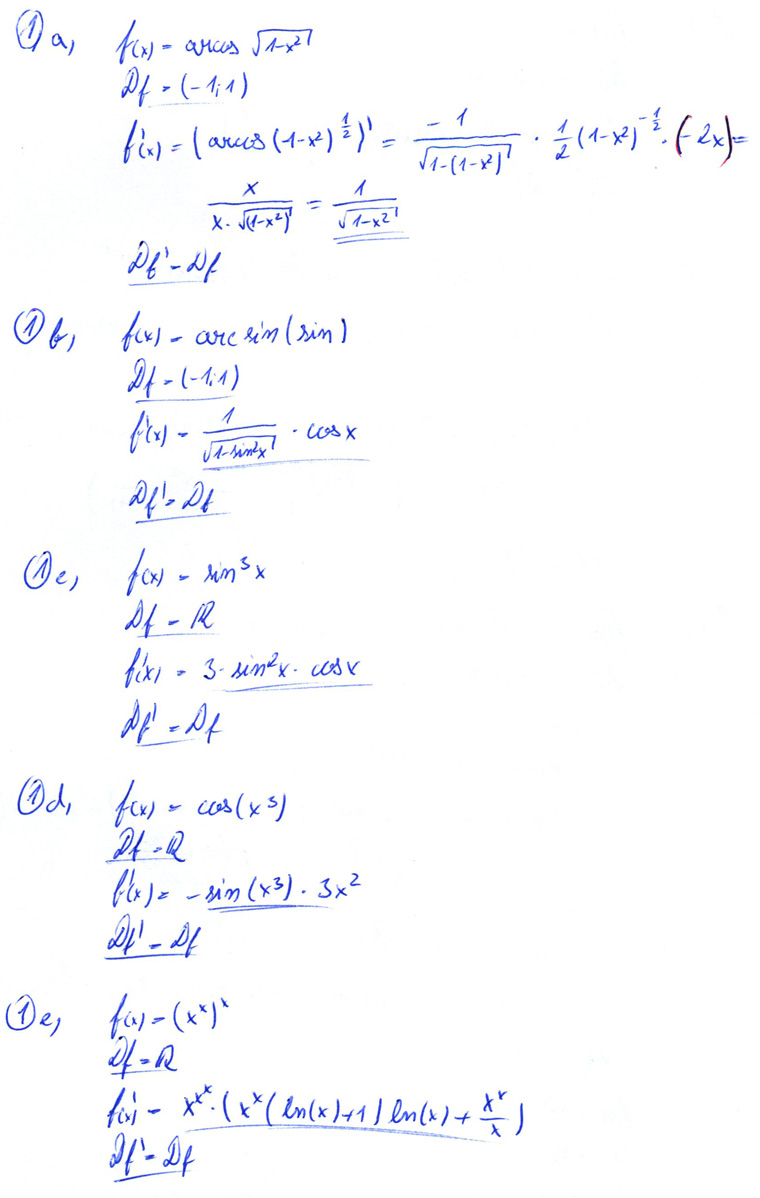 ① a, f(x) = arccos √(1-x²)
Df = (-1;1)
f'(x) = (arccos (1-x²)^(1/2))' = -1/√(1-(1-x²)) · 1/2 (1-x²)^(-1/2) · (-2x) =
x/(x·√(1-x²)) = 1/√(1-x²)
Df' = Df
① b, f(x) = arc sin (sin)
Df = (-1;1)
f'(x) = 1/√(1-sin²x) · cosx
Df' = Df
① c, f(x) = sin³x
Df = ℝ
f'(x) = 3·sin²x·cosx
Df' = Df
① d, f(x) = cos(x³)
Df = ℝ
f'(x) = -sin(x³)·3x²
Df' = Df
① e, f(x) = (x^x)^x
Df = ℝ
f'(x) = x^x^x · (x^x (ln(x)+1) ln(x) + x^x/x)
Df' = Df